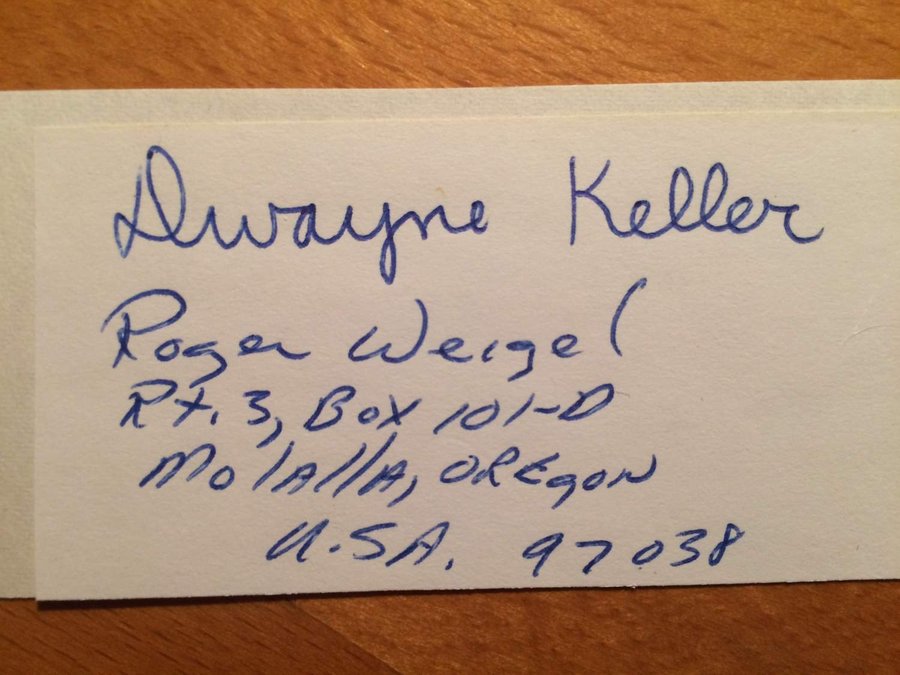 Dwayne Keller
Roger Weigel
Rt. 3, Box 101-D
Molalla, Oregon
U.S.A. 97038